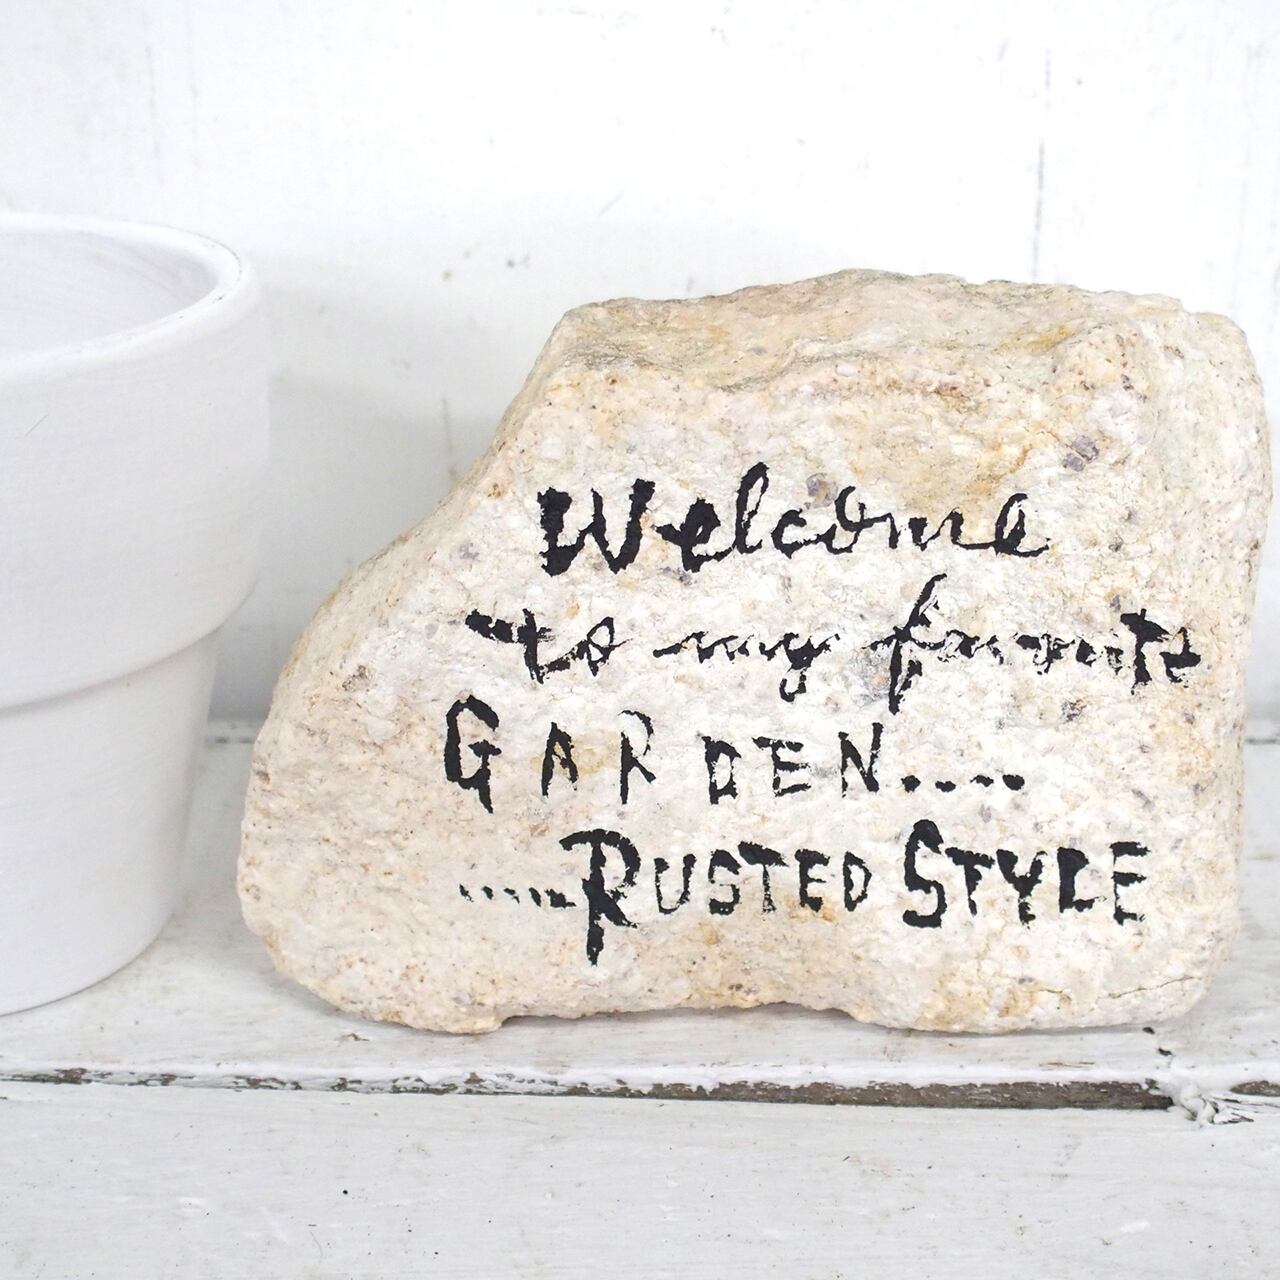 Welcome
to my favorite
GARDEN....
.....RUSTED STYLE